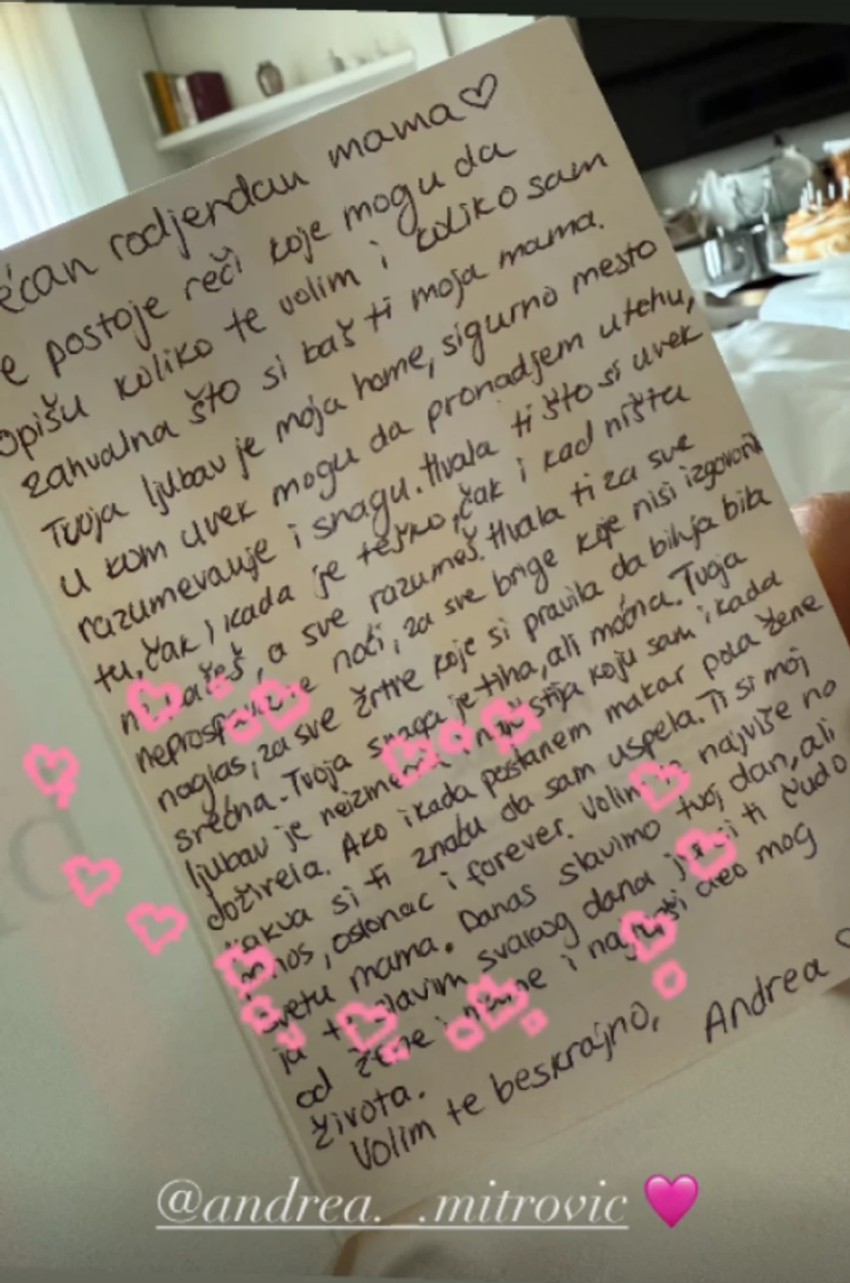 ećan rodjendan mama♡
e postoje reči koje mogu da
opišu koliko te volim i koliko sam
zahvalna što si baš ti moja mama.
Tvoja ljubav je moja home, sigurno mesto
u kom uvek mogu da pronadjem utehu,
razumevanje i snagu. Hvala ti što si uvek
tu, čak i kada je teško, čak i kad ništa
a sve razumeš. Hvala ti za sve
noći, za sve brige koje nisi izgovorila
naglas, za sve žrtve koje si pravila da bih ja bila
srećna. Tvoja snaga je tiha, ali moćna. Tvoja
ljubav je koju sam ikada
doživela. Ako ikada postanem makar pola žene
kakva si ti znaću da sam uspela. Ti si moj
ponos, oslonac i forever. Volim najviše na
svetu mama. Danas slavimo tvoj dan, ali
ja slavim svakog dana si ti čudo
od žene i deo mog
života.
Volim te beskrajno,
Andrea ♡
@andrea._.mitrovic 🩷